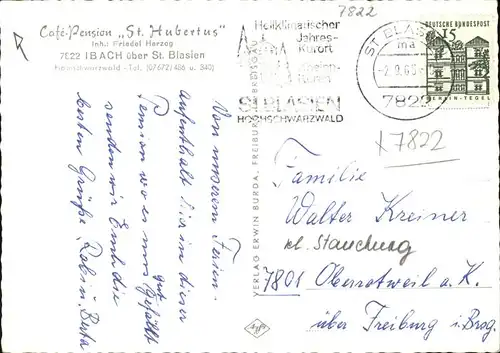 7822
Café-Pension „St. Hubertus"
Inh.: Friedel Herzog
7822 IBACH über St. Blasien
Hochschwarzwald - Tel. (07672) 486 u. 340)
Heilklimatischer
Jahres-
Kurort
Kneipp-
Kuren
ST. BLASIEN
HOCHSCHWARZWALD
ST. BLASIEN
ma
-2.9.65
7822
DEUTSCHE BUNDESPOST
15
BERLIN-TEGEL
x 7822
Von unserem Ferien-
aufenthalt hier in dieser
Pension wo es uns gut gefällt
senden wir Euch die
besten Grüße
VERLAG ERWIN BURDA, FREIBURG
Agfa
Familie
Walter Kreiner
7801 Oberrotweil a. K.
über Freiburg i. Brsg.